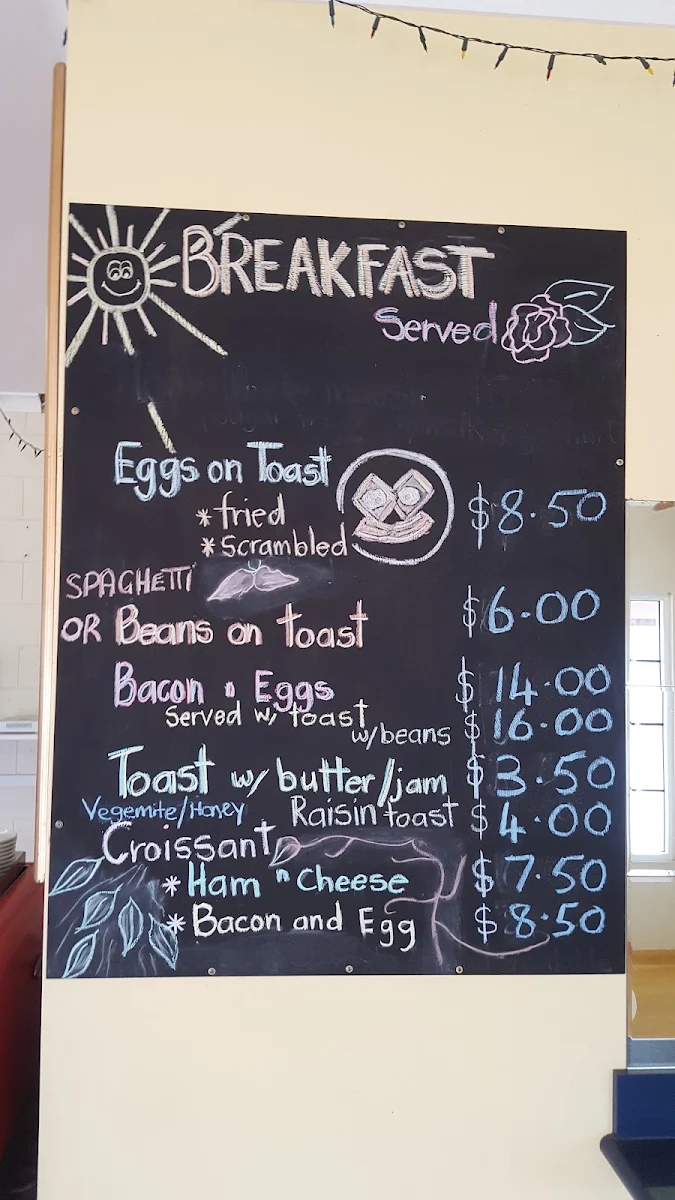 BREAKFAST
Served
Eggs on Toast
*fried $8.50
*scrambled
SPAGHETTI
OR Beans on toast $6.00
Bacon n Eggs $14.00
Served w/ toast
w/beans $16.00
Toast w/ butter/jam $3.50
Vegemite/Honey Raisin toast $4.00
Croissant
*Ham n Cheese $7.50
*Bacon and Egg $8.50